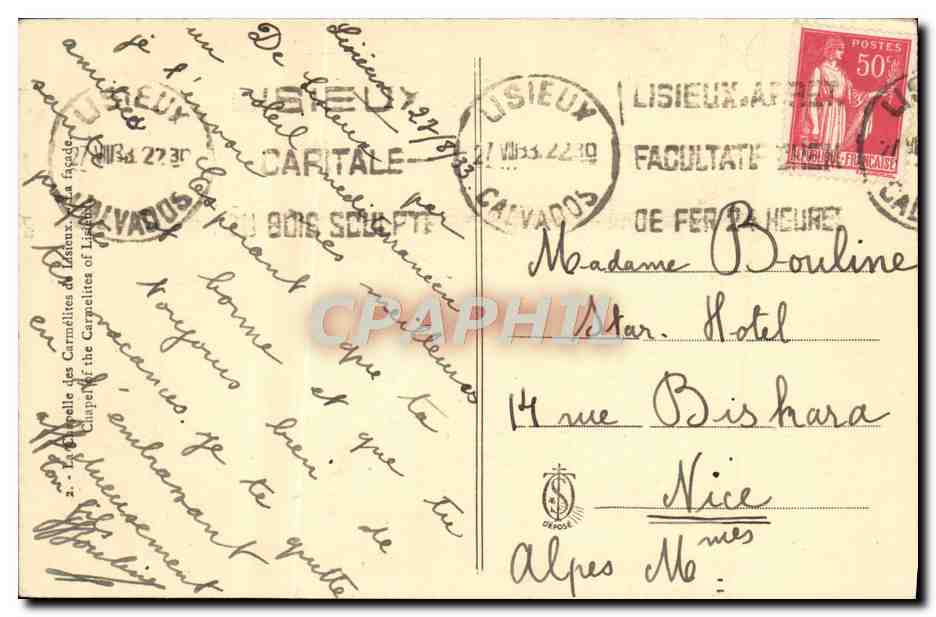 Lisieux, 27/8/33.
De Lisieux, par
un soleil méditerranéen
je t'envoie mes meilleures
amitiés. Espérant que ta
santé bonne et que tu
toujours bien de
tes vacances. Je te quitte
en t'embrassant
affectueusement
Ton fils
Bouline
2. - La Chapelle des Carmélites de Lisieux. - La façade.
Chapel of the Carmelites of Lisieux
LISIEUX
27 VIII 33. 22 30
CALVADOS
LISIEUX
CAPITALE
DU BOIS SCULPTE
LISIEUX
27 VIII 33. 22 30
CALVADOS
LISIEUX. ARRET
FACULTATIF CHEM
DE FER 24 HEURES
POSTES
50c
REPUBLIQUE FRANÇAISE
Madame Bouline
Star. Hotel
14 rue Biskara
Nice
Alpes Mmes
DEPOSE
CPAPHIL